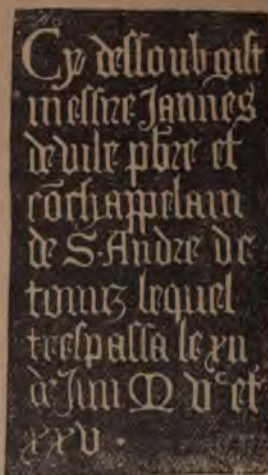 Cy dessoub gist
messire Jannes
de vile pbre et
cōchappelain
de S. Andre de
lequel
trespassa le xii
de Juni M Vᶜ et
xxv .